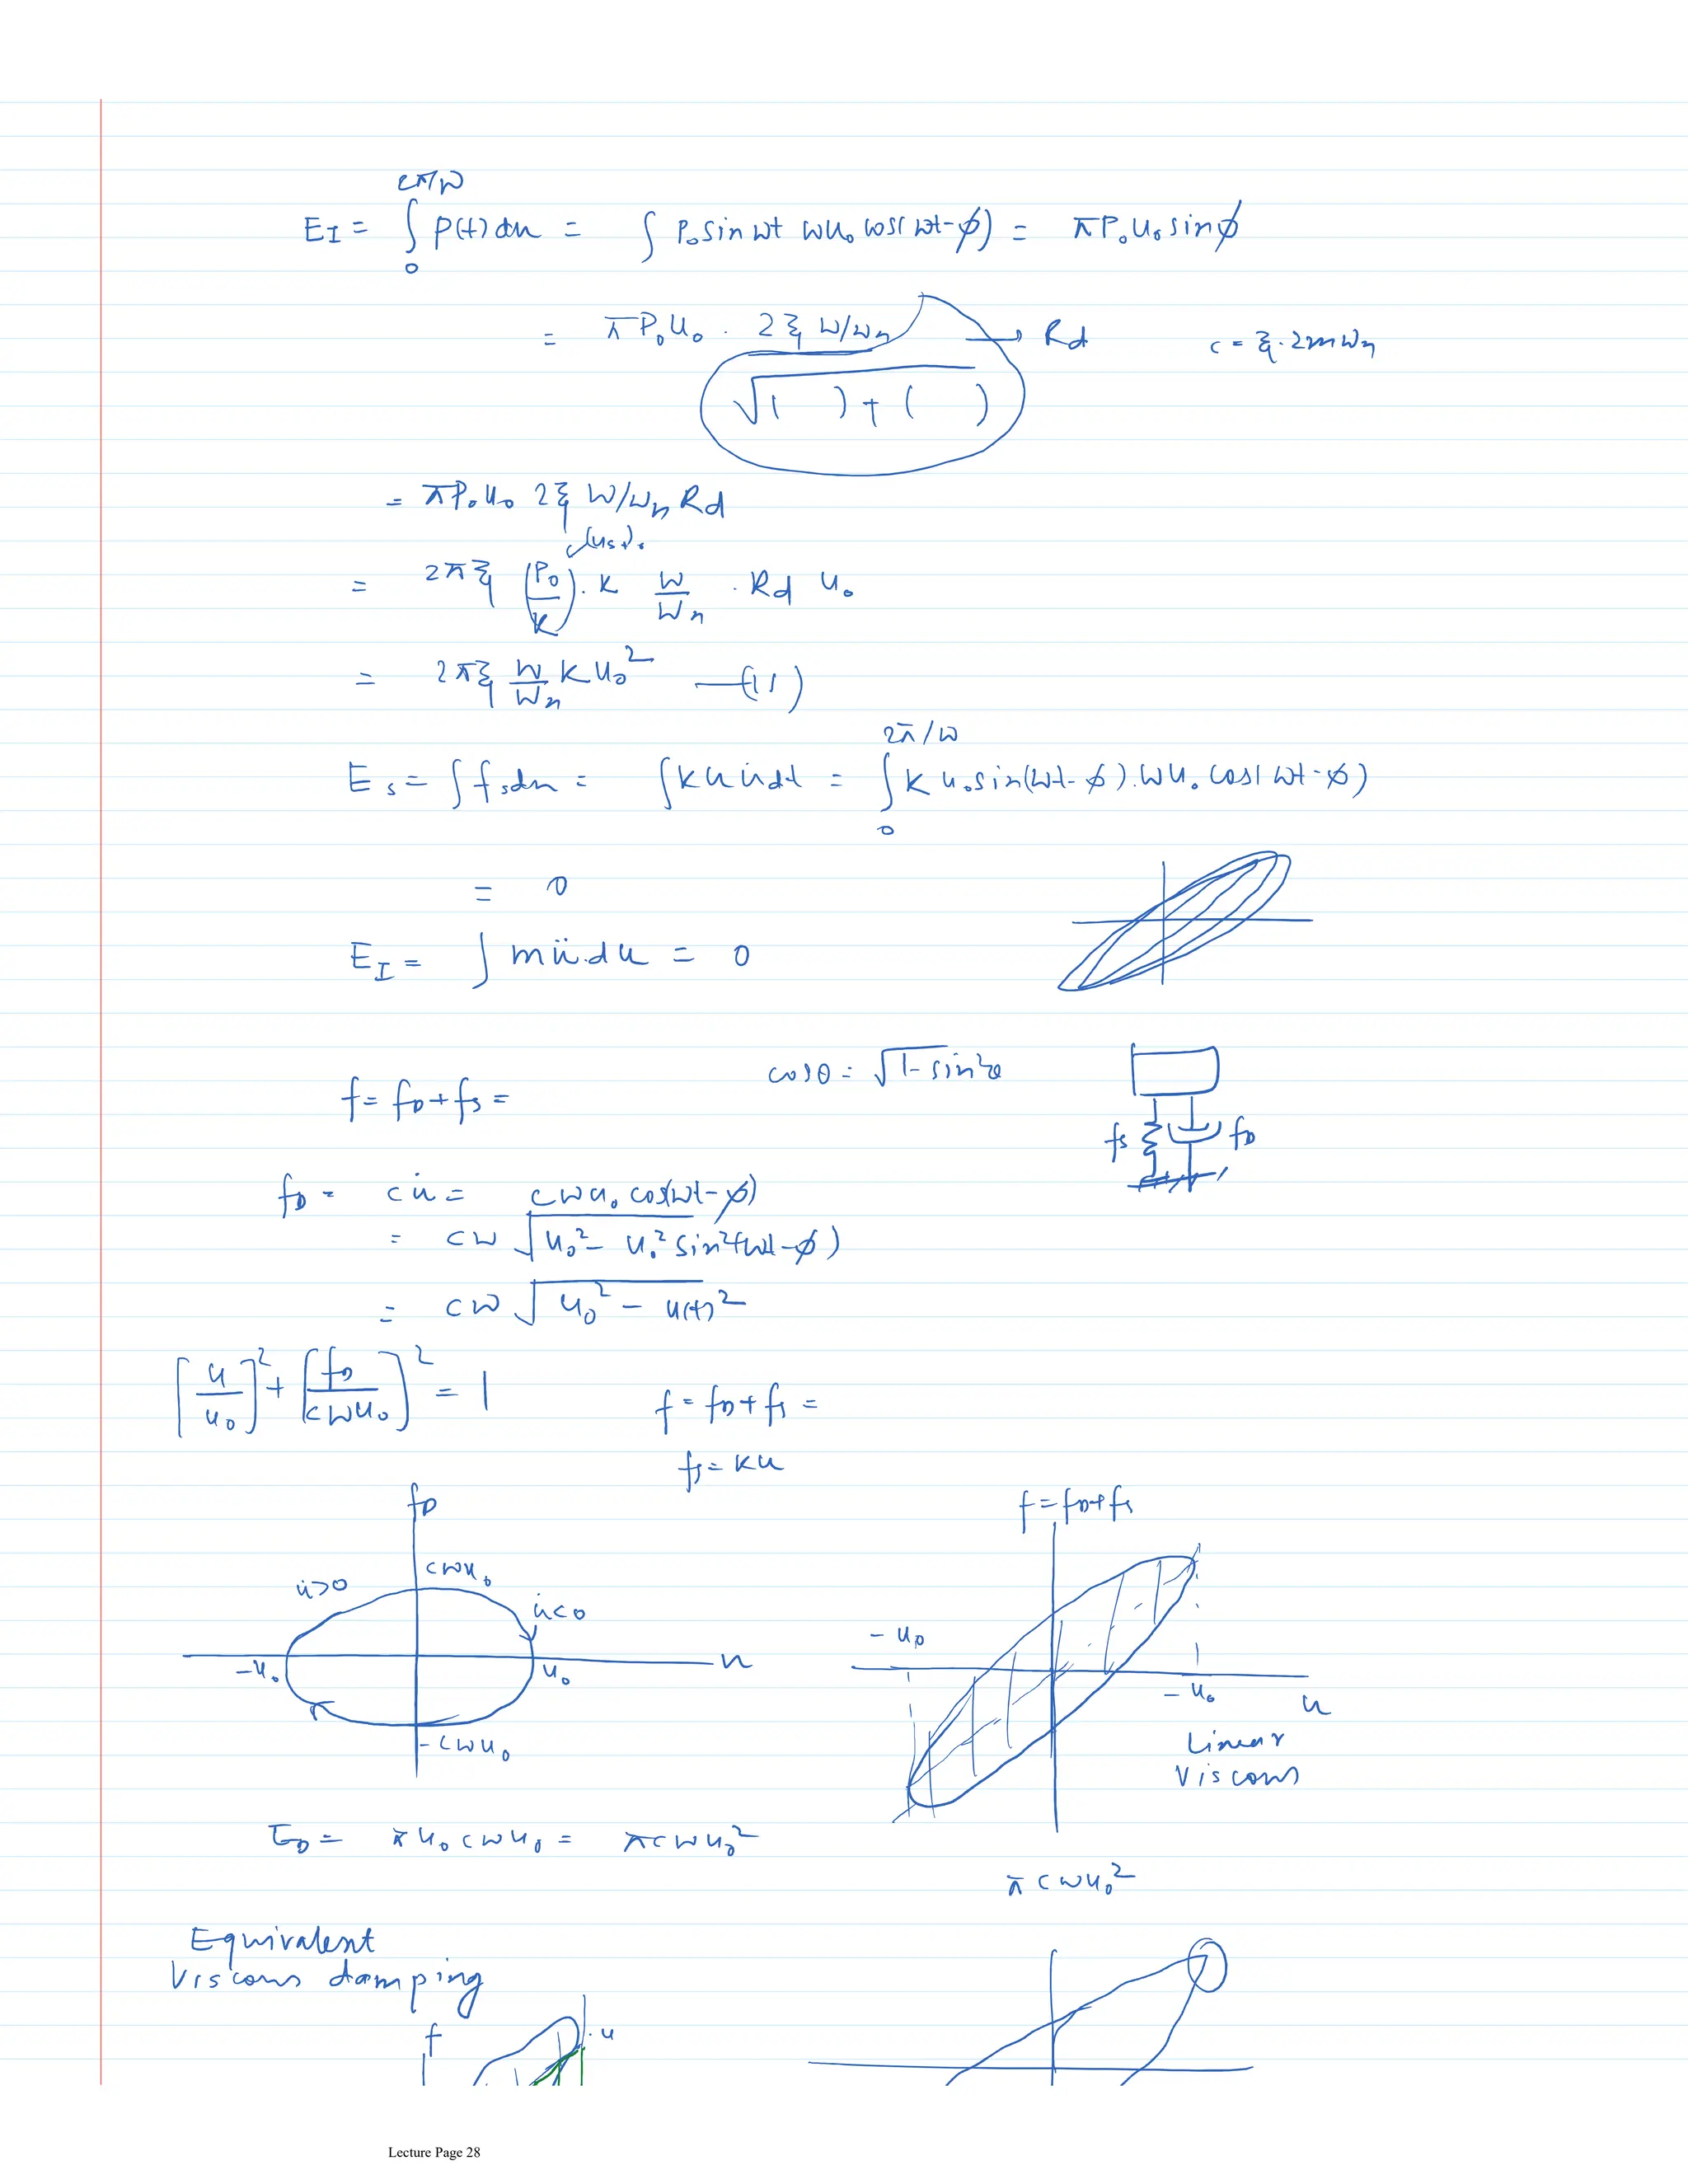 2π/ω
E_I = ∫_0 P(t) du = ∫ P₀ sin ωt ωu₀ cos(ωt-φ) = πP₀u₀ sinφ
= πP₀u₀ · 2ξ ω/ωn → Rd c = ξ·2mωn
√( ) + ( )
= πP₀u₀ 2ξ ω/ωn Rd
(ust)₀
= 2πξ (P₀/k)·k ω/ωn · Rd u₀
= 2πξ ω/ωn k u₀² —(1)
E_s = ∫ f_s du = ∫ k u u̇ dt = ∫_0^{2π/ω} k u₀ sin(ωt-φ)·ωu₀ cos(ωt-φ)
= 0
E_I = ∫ mü·du = 0
cosθ = √1-sin²θ
f = f_D + f_s =
fs f_D
f_D = cu̇ = cωu₀ cos(ωt-φ)
= cω √u₀² - u₀² sin²(ωt-φ)
= cω √u₀² - u(t)²
[u/u₀]² + [f_D/cωu₀]² = 1
f = f_D + f_s =
f_s = ku
f_D
f = f_D + f_s
cωu₀
u̇>0
u̇<0
-u₀
u₀
u
-cωu₀
-u₀
-u₀
u
Linear
Viscous
E_D = πu₀cωu₀ = πcωu₀²
πcωu₀²
Equivalent
Viscous damping
f
u
Lecture Page 28